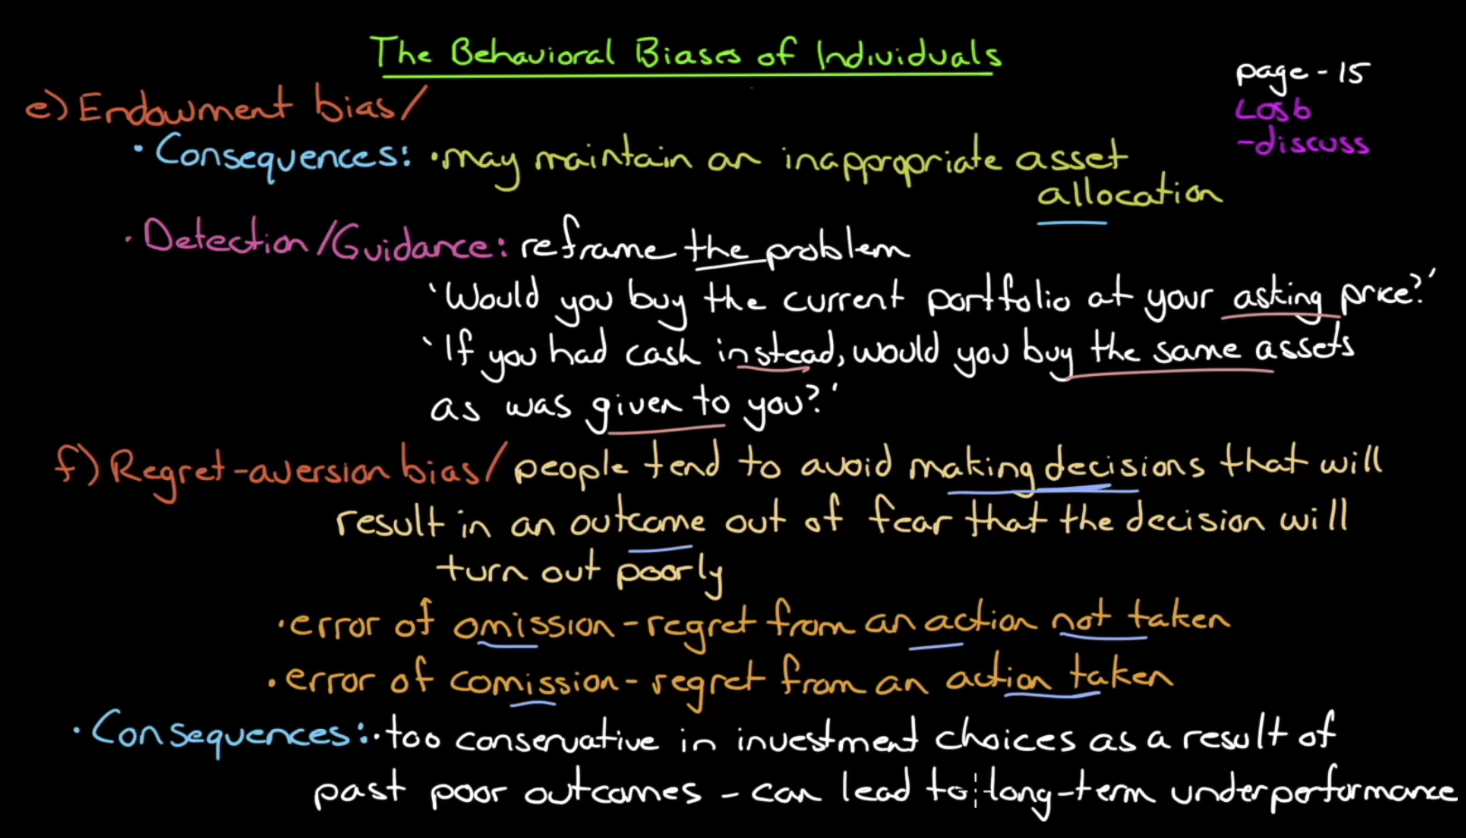 The Behavioral Biases of Individuals
page - 15
LOS b
- discuss
e) Endowment bias/
· Consequences: · may maintain an inappropriate asset
allocation
· Detection/Guidance: reframe the problem
'Would you buy the current portfolio at your asking price?'
'If you had cash instead, would you buy the same assets
as was given to you?'
f) Regret-aversion bias/ people tend to avoid making decisions that will
result in an outcome out of fear that the decision will
turn out poorly
· error of omission - regret from an action not taken
· error of comission - regret from an action taken
· Consequences: · too conservative in investment choices as a result of
past poor outcomes - can lead to long-term underperformance